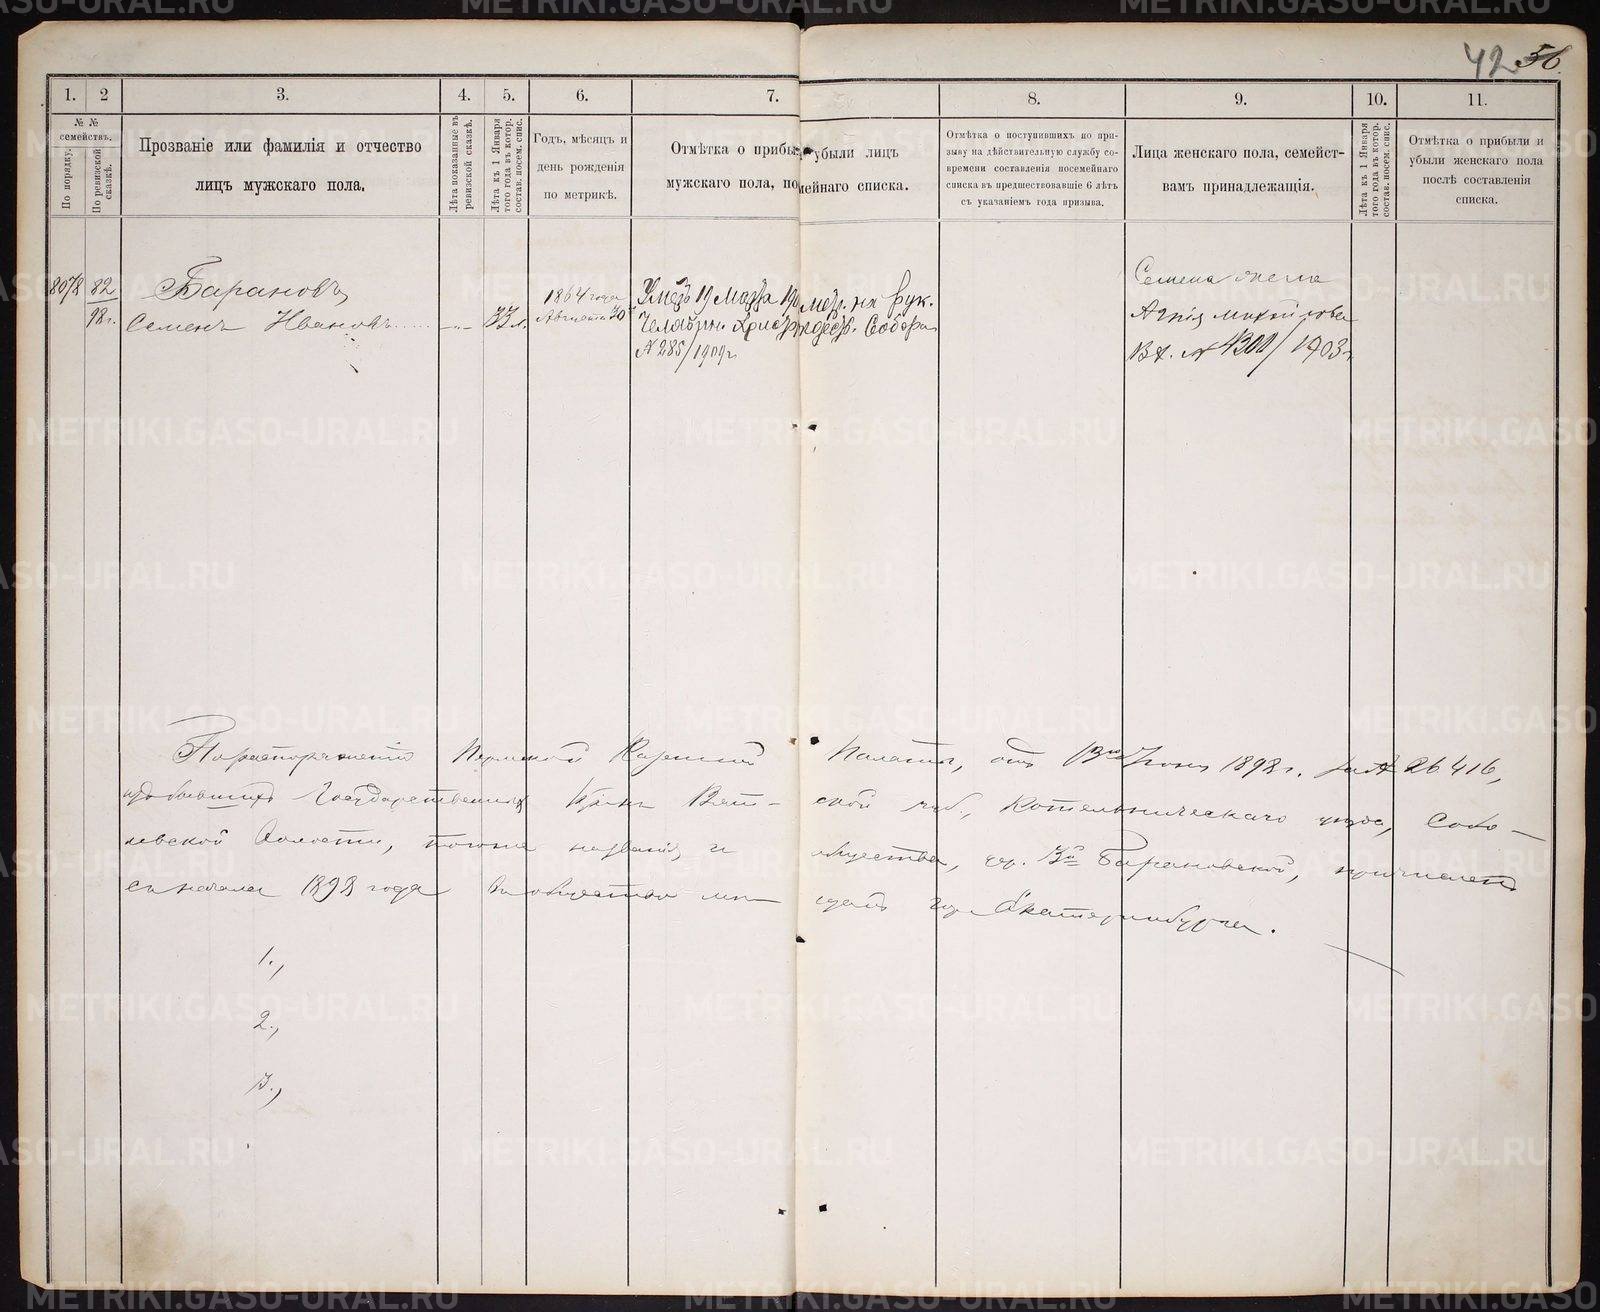 42 56
1. 2 3. 4. 5. 6. 7. 8. 9. 10. 11.
№ №
семействъ.
По порядку.
По ревизской
сказкѣ.
Прозваніе или фамилія и отчество
лицъ мужскаго пола.
Лѣта показанные въ
ревизской сказкѣ.
Лѣта къ 1 Января
того года въ котор.
состав. посем. спис.
Годъ, мѣсяцъ и
день рожденія
по метрикѣ.
Отмѣтка о прибы убыли лицъ
мужскаго пола, по мейнаго списка.
Отмѣтка о поступившихъ по при-
зыву на дѣйствительную службу со-
времени составленія посемейнаго
списка въ предшествовавшіе 6 лѣтъ
съ указаніемъ года призыва.
Лица женскаго пола, семейст-
вамъ принадлежащія.
Лѣта къ 1 Января
того года въ котор.
состав. посем. спис.
Отмѣтка о прибыли и
убыли женскаго пола
послѣ составленія
списка.
8078
82
98 г.
Барановъ
Семенъ Ивановъ
33 л.
1864 года
Августа 30
Умеръ 19 Марта
Челябин. Христорождест. Собора
№ 285/1909 г.
Семена жена
Агнія Михайлова
Вх. № 4301/1903 г.
По распоряженію Пермской Казенной Палаты, отъ Іюня 1898 г. за № 26416,
изъ бывшихъ Государственныхъ Крест. Вят-ской губ., Котельническаго уѣзда, Собо-
левской Волости, того же названія общества, дер. Барановской, причисленъ
съ начала 1898 года въ общество мѣ-щанъ гор. Екатеринбурга.
1.,
2.,
3.,
METRIKI.GASO-URAL.RU